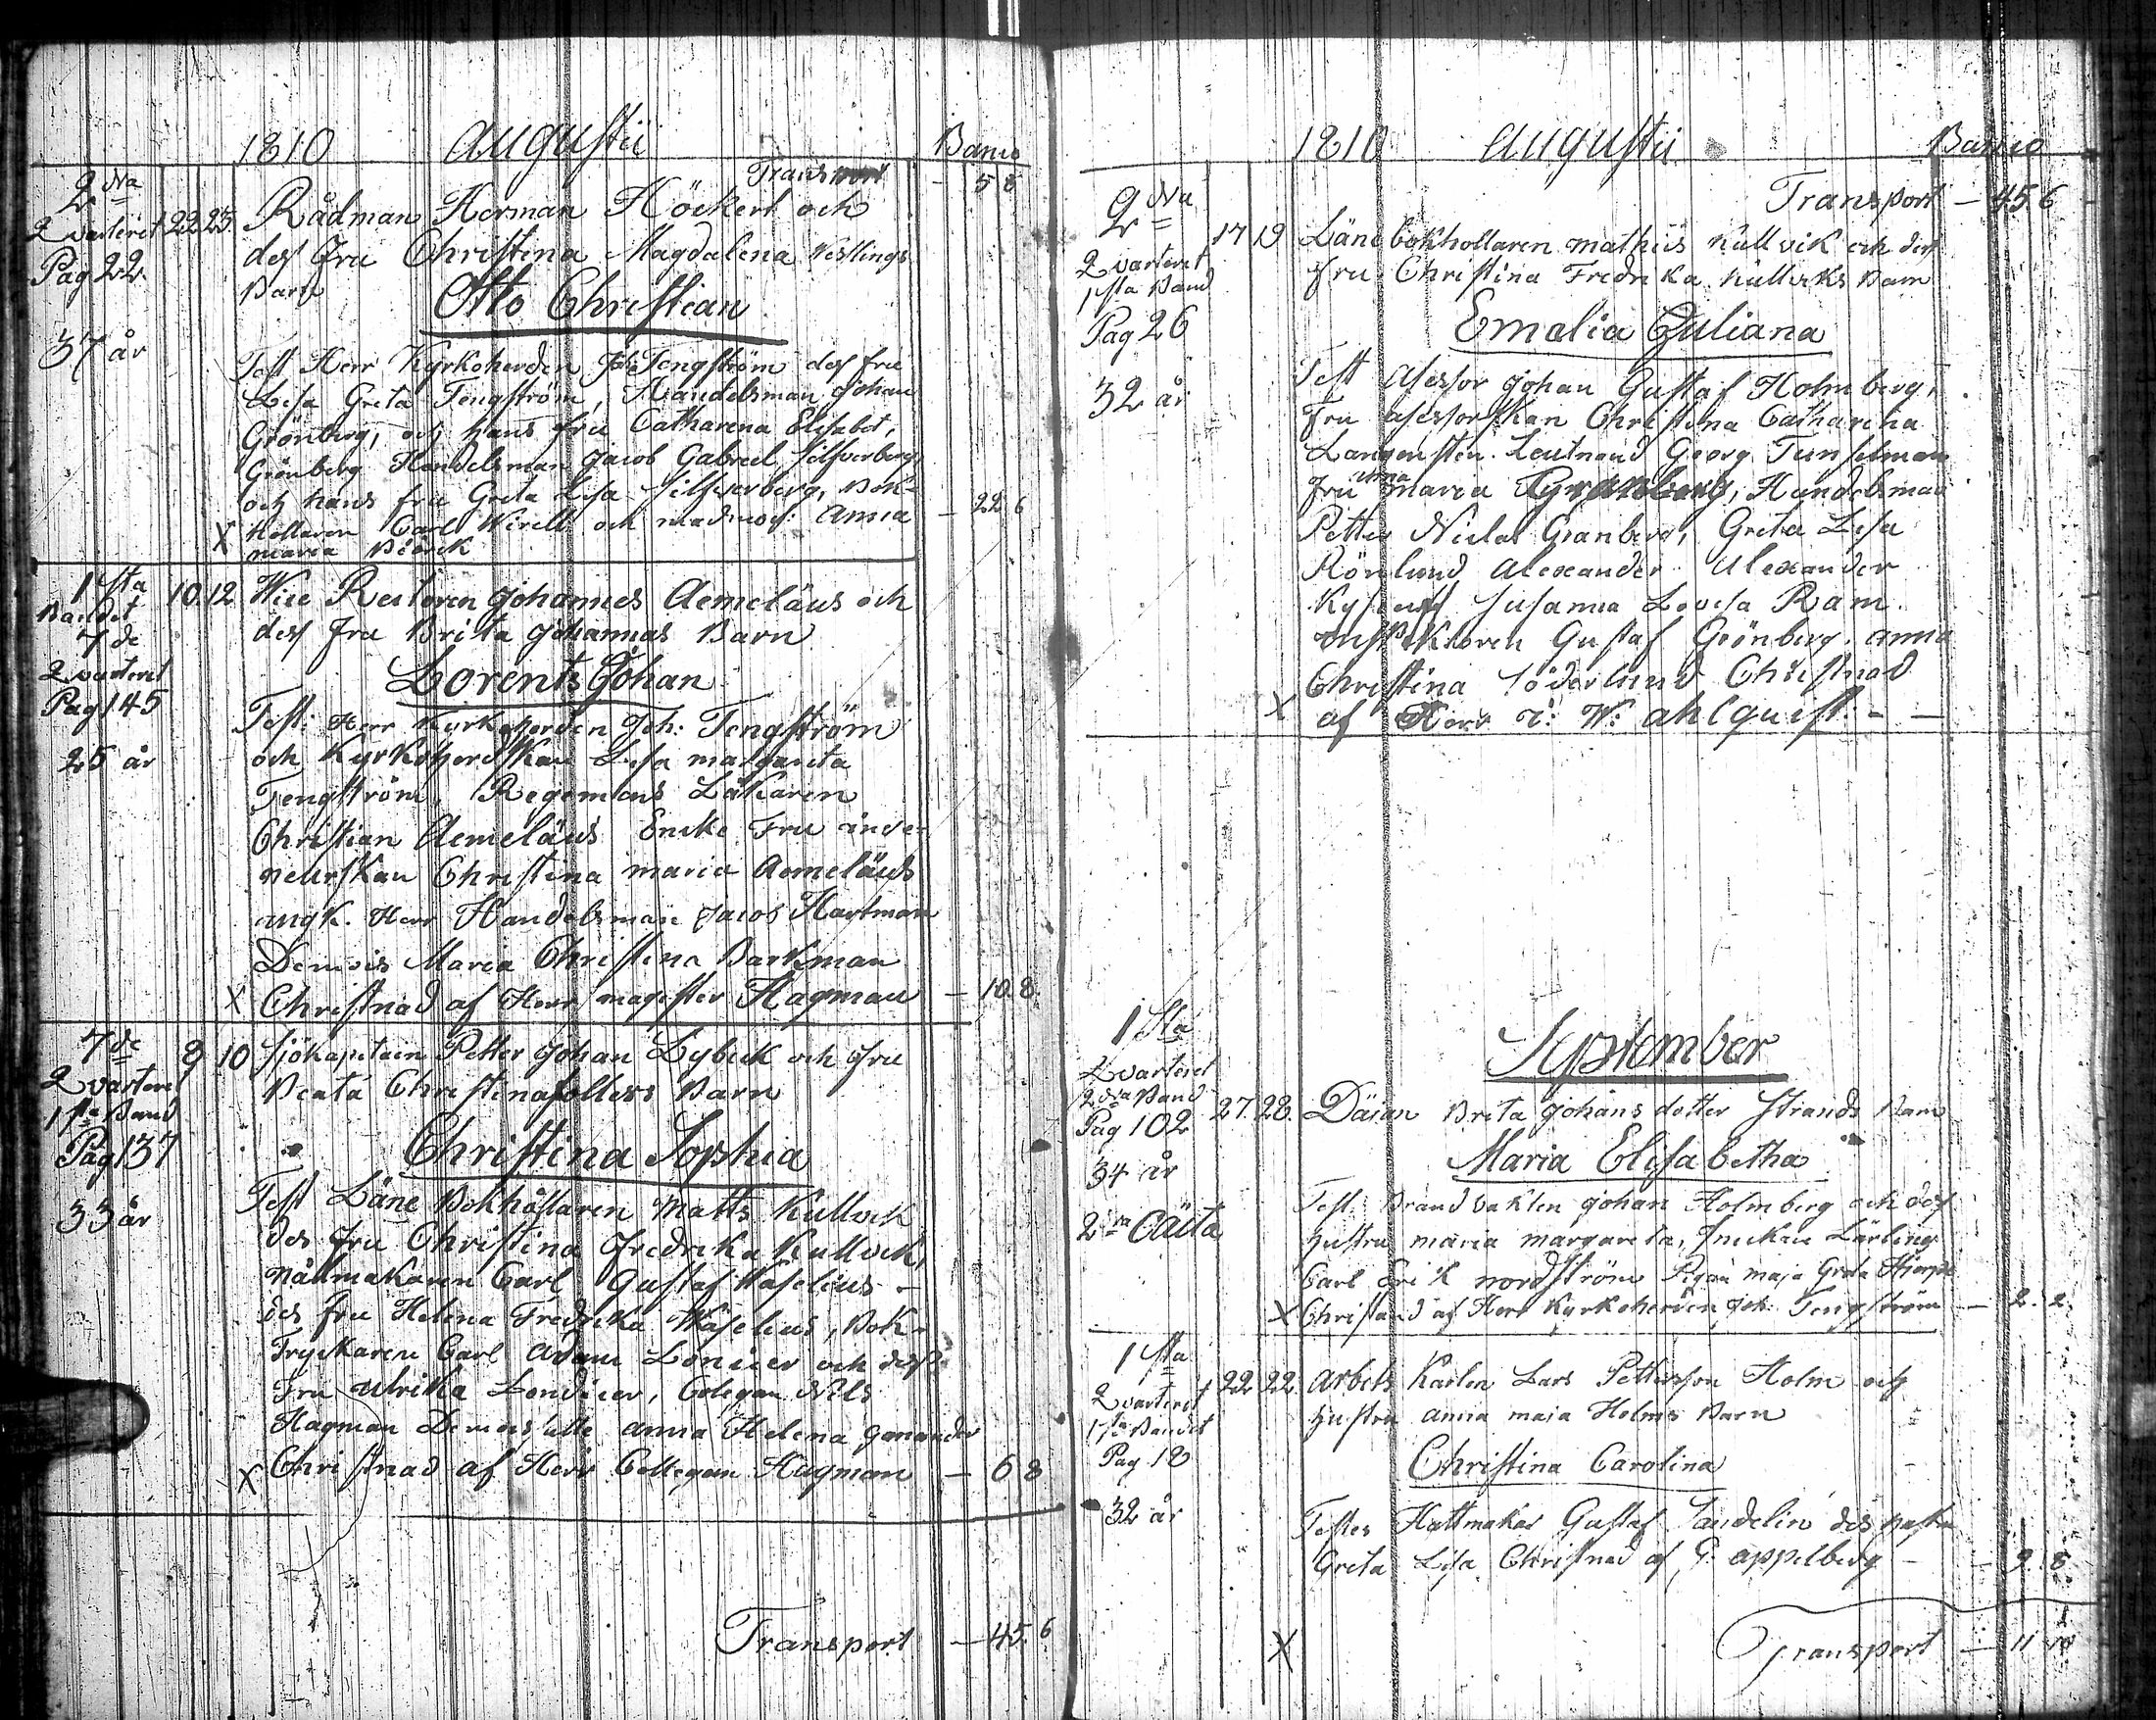 1810 Augustii Banco
Transport - 5 8
2dra
Qvarteret 22 23. Rådman Herman Höckert och
Pag 22. dess Fru Christina Magdalena Westlings
Barn Otto Christian
37 år
Test Herr Kyrkoherden Joh: Tengström des fru
Lisa Greta Tengström, Handelsman Johan
Grönberg, och hans fru Catharina Elisabet,
Grönberg Handelsman Jacob Gabriel Silfverberg,
och hans fru Greta Lisa Silfverberg, Bok- - 22 6
X Hollaren Carl Wirell och madmos: Anna
maria Björk
1sta 10 12 Wice Rectoren Johannes Aemeläus och
Bandet
7de dess fru Brita Johannas Barn
Qvarteret Lorents Johan
Pag 145
Test: Herr Kyrkoherden Joh: Tengström
25 år och Kyrkoherdskan Lisa margareta
Tengström, Regements Läkaren
Christian Aemeläus Encke Fru
neurskan Christina maria Aemeläus
ungk. Herr Handelsman Jacob Hartman
Demois Maria Christina Barkman
X Christnad af Herr magister Hagman - 10. 8.
7de 8 10 Sjökapitain Petter Johan Lybeck och fru
Qvarteret
1sta Band Beata Christina Barn
Pag 137 Christina Sophia
33 år Test Läne Bokhållaren Matts Kullvik
des fru Christina Fredrika Kullvik,
Carl Gustaf Waselius -
des fru Helena Fredrika Waselius, Bok-
Tryckaren Carl Adam Londicer och dess
Fru Ulrika Londicer, Colegan Nils
Hagman Demoiselle Anna Helena Ganander
X Christnad af Herr Collegan Hagman - 6 8
Transport - 45. 6
1810 Augustii Banco
Transport - 45. 6
2dra 17 19 Länsbokhollaren mathis Kullvik och dess
Qvarteret
1sta Band fru Christina Fredrika Kullviks Barn
Pag 26 Emelia Juliana
32 år Test Asessor Johan Gustaf Holmberg,
Fru Asessorskan Christina Catharina
Langensten Leutnand Georg Tunselman
Fru Anna maria Handelsman
Petter Niclas Granberg, Greta Lisa
Rönlund Alexander Alexander
Susanna Lovisa Ram
Inspektoren Gustaf Grönberg. Anna
Christina Söderlund Christnad
X af Herr W: Ahlquist. -
September
1sta
Qvarteret
2dra Band
Pag 102 27. 28. Däian Brita Johans dotter Strands Barn
34 år Maria Elisabetha
2dra oäkta Test. Brandvakten Johan Holmberg och dess
hustru maria margareta, Snickare Lärling
Carl Erik nordström Pigan maja Greta Hierpe
X Christnad af Herr Kyrkoherden Joh: Tengström - 2. 2.
1sta
Qvarteret 22 22. Arbets Karlen Lars Pettersson Holm och
1sta Bandet hustru Anna maja Holms Barn
Pag 18 Christina Carolina
32 år Testes Hattmakar Gustaf Sandelin des hustru
Greta Lisa Christnad af G: Appelberg - 9. 8.
X Transport - 11 10